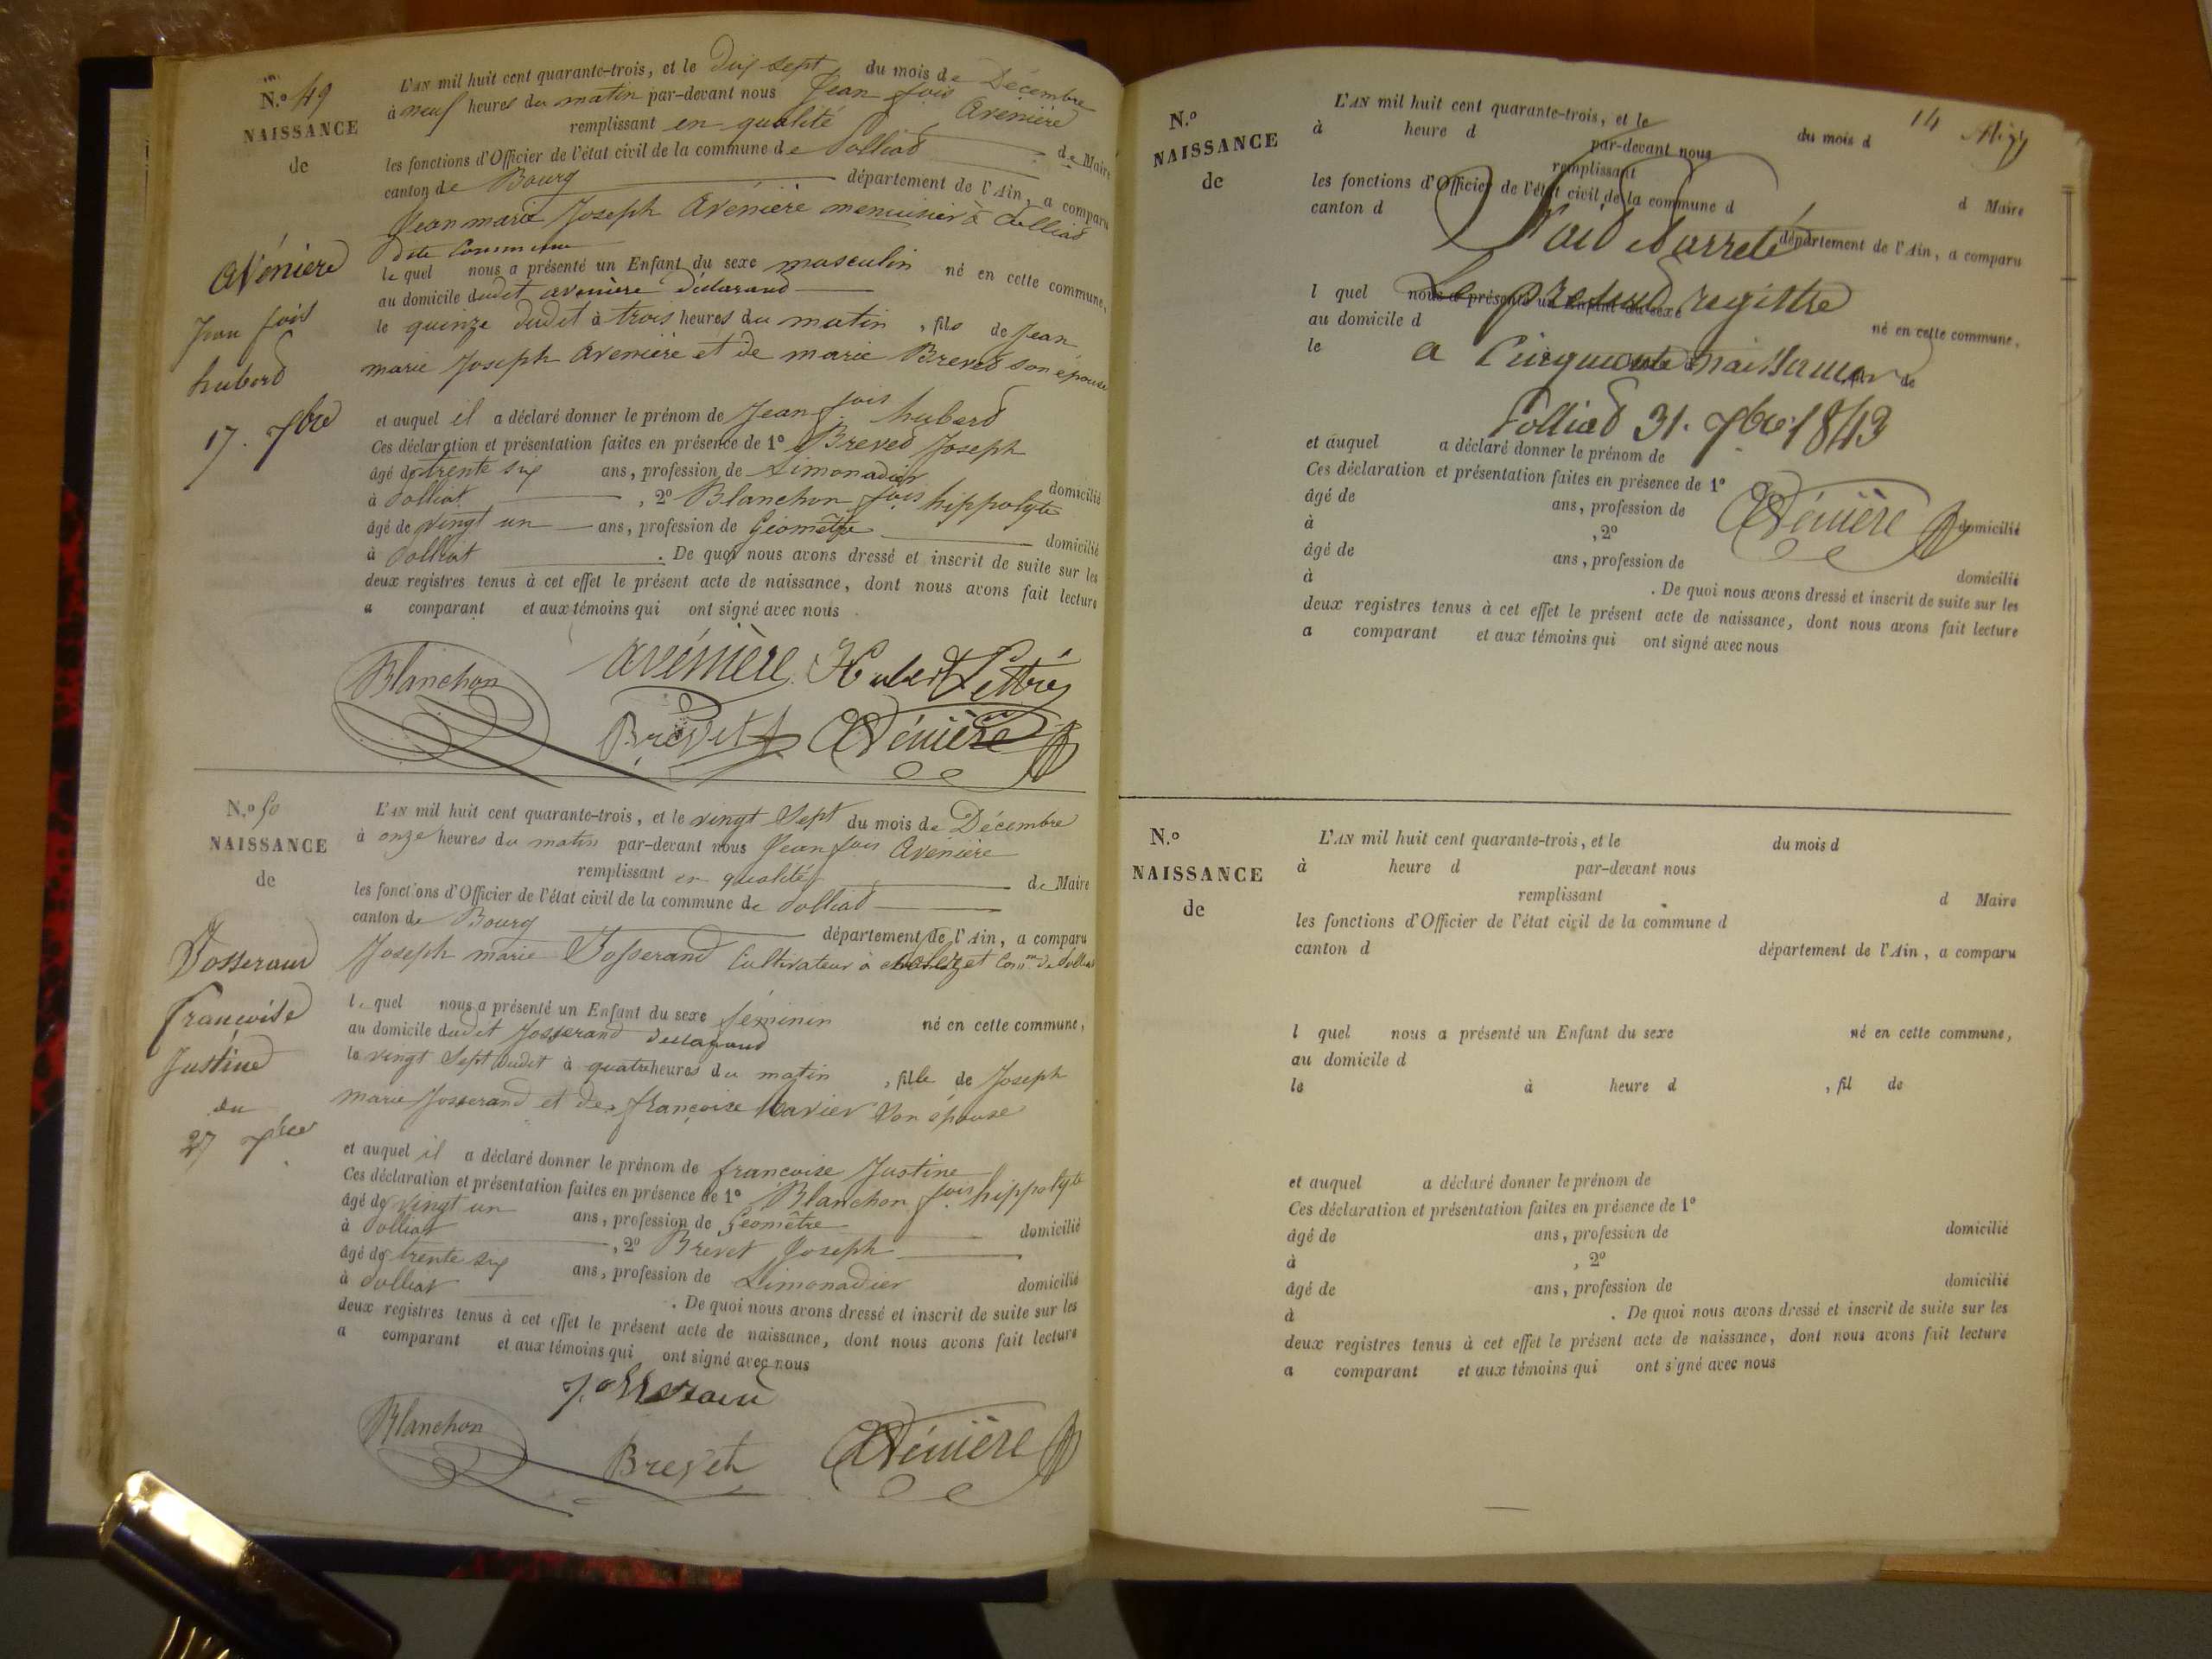 N.º 49
NAISSANCE
de
Avéniere
Jean fois
hubord
17. Xbre
L'AN mil huit cent quarante-trois, et le dix sept du mois de Décembre
à neuf heures du matin par-devant nous Jean fois Aveniere
remplissant en qualité de Maire
les fonctions d'Officier de l'état civil de la commune de Polliat
canton de Bourg département de l'Ain, a comparu
Jean marie Joseph Aveniere menuisier à Polliat
dite Commune
le quel nous a présenté un Enfant du sexe masculin né en cette commune,
au domicile dudit aveniere déclarand
le quinze dudit à trois heures du matin, fils de Jean
marie Joseph Aveniere et de marie Breved son épouse
et auquel il a déclaré donner le prénom de Jean fois hubord
Ces déclaration et présentation faites en présence de 1º Breved Joseph
âgé de trente six ans, profession de Limonadier domicilié
à Polliat, 2º Blanchon fois hippolyte
âgé de vingt un ans, profession de Géomètre domicilié
à Polliat. De quoi nous avons dressé et inscrit de suite sur les
deux registres tenus à cet effet le présent acte de naissance, dont nous avons fait lecture
a comparant et aux témoins qui ont signé avec nous
Blanchon avénière Hubert
Brevet Avénière
N.º 50
NAISSANCE
de
Josserand
Francoise
Justine
du
27 Xbre
L'AN mil huit cent quarante-trois, et le vingt Sept du mois de Décembre
à onze heures du matin par-devant nous Jean fois Aveniere
remplissant en qualité de Maire
les fonctions d'Officier de l'état civil de la commune de Polliat
canton de Bourg département de l'Ain, a comparu
Joseph marie Josserand Cultivateur à Comne de Polliat
le quel nous a présenté un Enfant du sexe féminin né en cette commune,
au domicile dudit Josserand declarand
le vingt Sept dudit à quatre heures du matin, fille de Joseph
marie Josserand et de françoise son épouse
et auquel il a déclaré donner le prénom de françoise Justine
Ces déclaration et présentation faites en présence de 1º Blanchon fois hippolyte
âgé de vingt un ans, profession de Géomètre domicilié
à Polliat, 2º Brevet Joseph
âgé de trente six ans, profession de Limonadier domicilié
à Polliat. De quoi nous avons dressé et inscrit de suite sur les
deux registres tenus à cet effet le présent acte de naissance, dont nous avons fait lecture
a comparant et aux témoins qui ont signé avec nous
Josserand
Blanchon Brevet Avénière
14
N.º
NAISSANCE
de
L'AN mil huit cent quarante-trois, et le du mois d
à heure d par-devant nous
remplissant d Maire
les fonctions d'Officier de l'état civil de la commune d
canton d département de l'Ain, a comparu
Clos et arreté
l quel nous a présenté un Enfant du sexe né en cette commune,
Le présent registre
au domicile d
le fil de
a Cinquante naissances
Polliat 31. Xbre 1843
et auquel a déclaré donner le prénom de
Ces déclaration et présentation faites en présence de 1º
âgé de ans, profession de domicilié
Avénière
à , 2º
âgé de ans, profession de domicilié
à . De quoi nous avons dressé et inscrit de suite sur les
deux registres tenus à cet effet le présent acte de naissance, dont nous avons fait lecture
a comparant et aux témoins qui ont signé avec nous
N.º
NAISSANCE
de
L'AN mil huit cent quarante-trois, et le du mois d
à heure d par-devant nous
remplissant d Maire
les fonctions d'Officier de l'état civil de la commune d
canton d département de l'Ain, a comparu
l quel nous a présenté un Enfant du sexe né en cette commune,
au domicile d
le à heure d , fil de
et auquel a déclaré donner le prénom de
Ces déclaration et présentation faites en présence de 1º
âgé de ans, profession de domicilié
à , 2º
âgé de ans, profession de domicilié
à . De quoi nous avons dressé et inscrit de suite sur les
deux registres tenus à cet effet le présent acte de naissance, dont nous avons fait lecture
a comparant et aux témoins qui ont signé avec nous